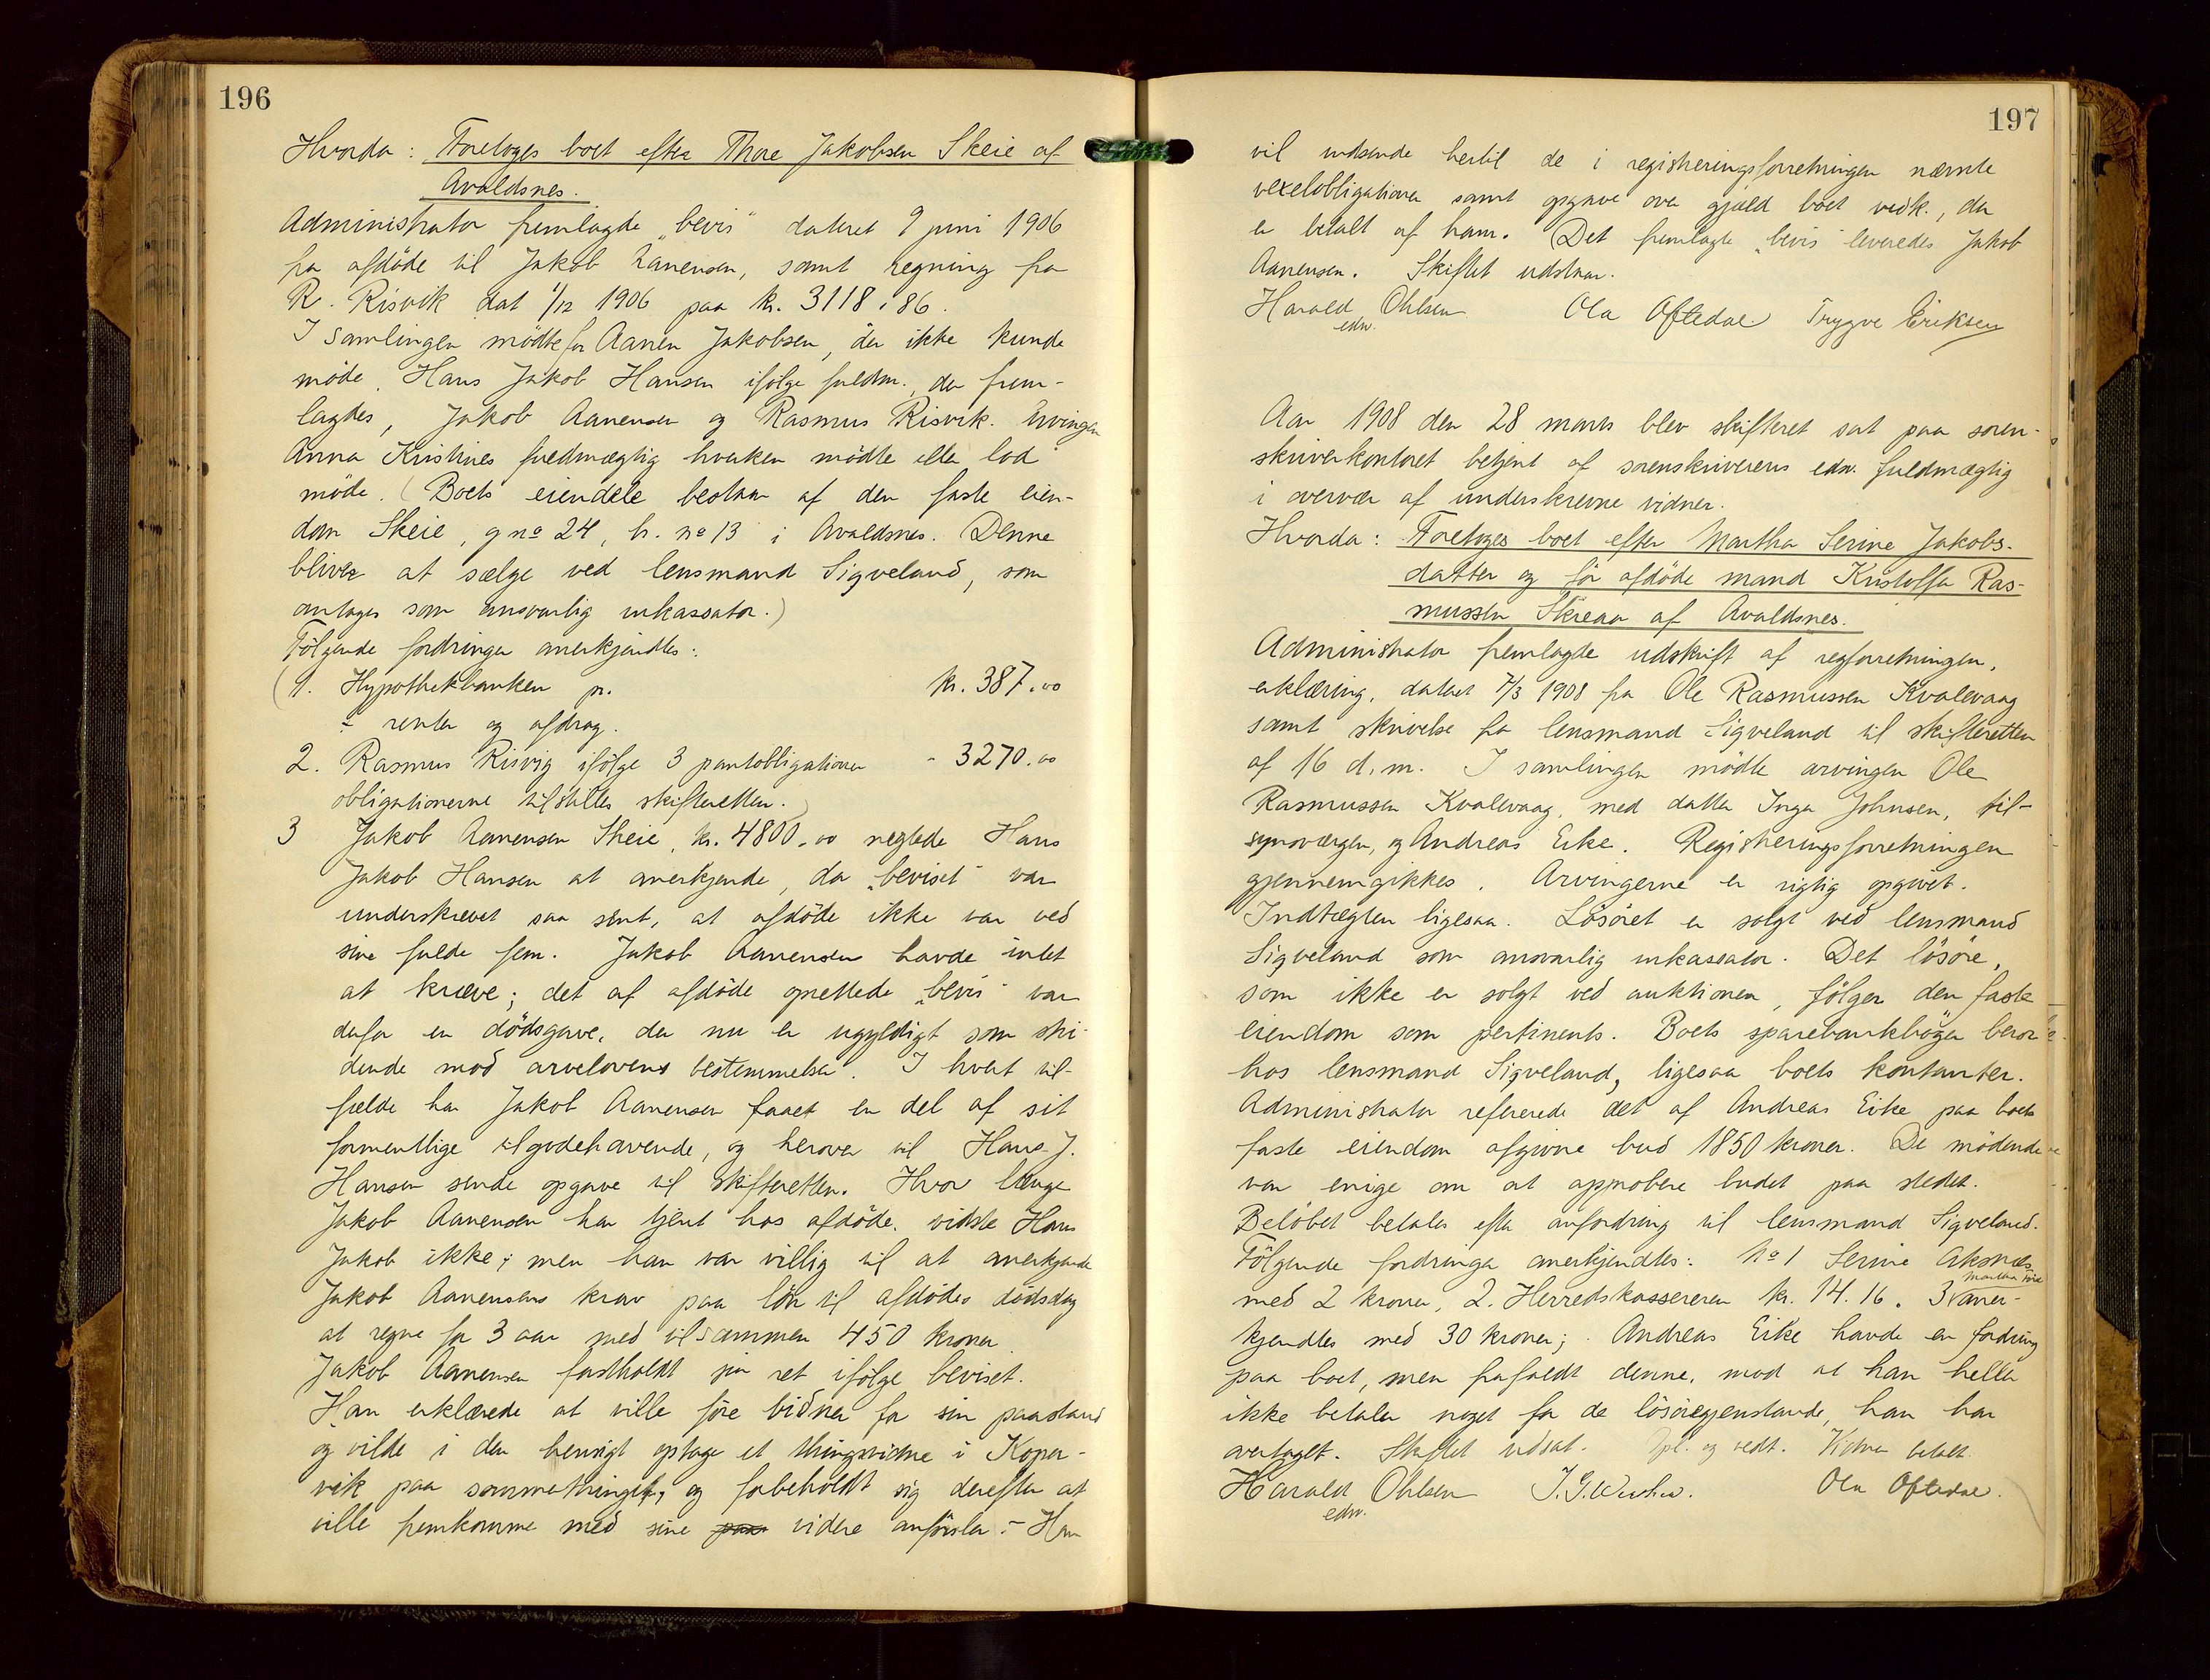 196
Hvorda: Foretoges boet efter Thore Jakobsen Skeie af
Avaldsnes.
Administrator fremlagde „bevis“ dateret 9 juni 1906
fra afdöde til Jakob Aanensen, samt regning fra
R. Risvik dat 1/12 1906 paa kr. 3118.86.
I samlingen mödte for Aanen Jakobsen, der ikke kunde
möde, Hans Jakob Hansen ifölge fuldm., der frem-
lagdes, Jakob Aanensen og Rasmus Risvik. Arvingen
Anna Kristines fuldmægtig hverken mödte eller lod
möde. (Boets eiendele bestaar af den faste eien-
dom Skeie, g no 24, br. no 13 i Avaldsnes. Denne
bliver at sælge ved lensmand Sigveland, som
antages som ansvarlig inkassator.)
Fölgende fordringer anerkjendtes:
(1. Hypothekbanken pr. kr. 387.00
÷ renter og afdrag.
2. Rasmus Risvig ifölge 3 pantobligationer - 3270.00
obligationerne tilstilles skifteretten.)
3 Jakob Aanensen Skeie, kr. 4800.00 neglede Hans
Jakob Hansen at anerkjende, da „beviset“ var
underskrevet saa sent, at afdöde ikke var ved
sine fulde fem. Jakob Aanensen havde intet
at kræve; det af afdöde oprettede „bevis“ var
derfor en dödsgave, der nu er ugyldigt som stri-
dende mod arvelovens bestemmelser. I hvert til-
fælde har Jakob Aanensen faaet en del af sit
formentlige tilgodehavende, og herover vil Hans J.
Hansen sende opgave til skifteretten. Hvor længe
Jakob Aanensen har tjent hos afdöde, vidste Hans
Jakob ikke; men han var villig til at anerkjende
Jakob Aanensens krav paa lön til afdödes dödsdag
at regne for 3 aar med tilsammen 450 kroner.
Jakob Aanensen fastholdt sin ret ifölge beviset.
Han erklærede at ville före vidner for sin paastand
og vilde i den hensigt optage et thingsvidne i Koper-
vik paa sommerthinget, og forbeholdt sig derefter at
ville fremkomme med sine videre anförsler. - Han
197
vil indsende hertil de i registreringsforretningen nævnte
vexelobligationer samt opgave over gjæld boet vedk., der
er betalt af ham. Det fremlagte „bevis“ leveredes Jakob
Aanensen. Skiftet udstaar.
Harald Ohlsen Ola Oftedal Trygve Eriksen
edsv.
Aar 1908 den 28 marts blev skifteret sat paa soren-
skriverkontoret betjent af sorenskriverens edsv. fuldmægtig
i overvær af underskrevne vidner.
Hvorda: Foretoges boet efter Martha Serine Jakobs-
datter og för afdöde mand Kristoffer Ras-
mussen Skreaa af Avaldsnes.
Administrator fremlagde udskrift af regforretningen,
erklæring, dateret 7/3 1908 fra Ole Rasmussen Kvalevaag
samt skrivelse fra lensmand Sigveland til skifteretten
af 16 d. m. I samlingen mödte arvingen Ole
Rasmussen Kvalevaag, med datter Inga Johnsen, til-
synsværgen, og Andreas Eike. Registreringsforretningen
gjennemgikkes. Arvingerne er rigtig opgivet.
Indtægten ligesaa. Lösöret er solgt ved lensmand
Sigveland som ansvarlig inkassator. Det lösöre,
som ikke er solgt ved auktionen, fölger den faste
eiendom som pertinents. Boets sparebankböger beror
hos lensmand Sigveland, ligesaa boets kontanter.
Administrator refererede det af Andreas Eike paa boets
faste eiendom afgivne bud 1850 kroner. De mödende
var enige om at approbere budet paa stedet.
Belöbet betales efter anfordring til lensmand Sigveland.
Fölgende fordringer anerkjendtes: no 1 Serine Aksnæs
med 2 kroner, 2. Herredskassereren kr. 14.16. 3. aner-
kjendtes med 30 kroner; Andreas Eike havde en fordring
paa boet, men frafaldt denne, mod at han heller
ikke betaler noget for de lösöregjenstande, han har
overtaget. Skiftet udsat. Opl. og vedt. Vidner betalt.
Harald Ohlsen Ola Oftedal.
edsv.